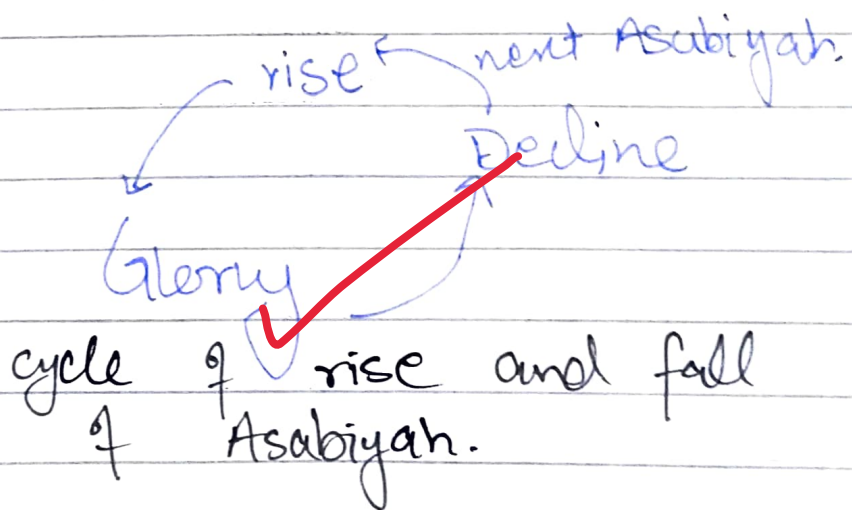 next Asabiyah.
rise
Decline
Glory
cycle of rise and fall
of Asabiyah.